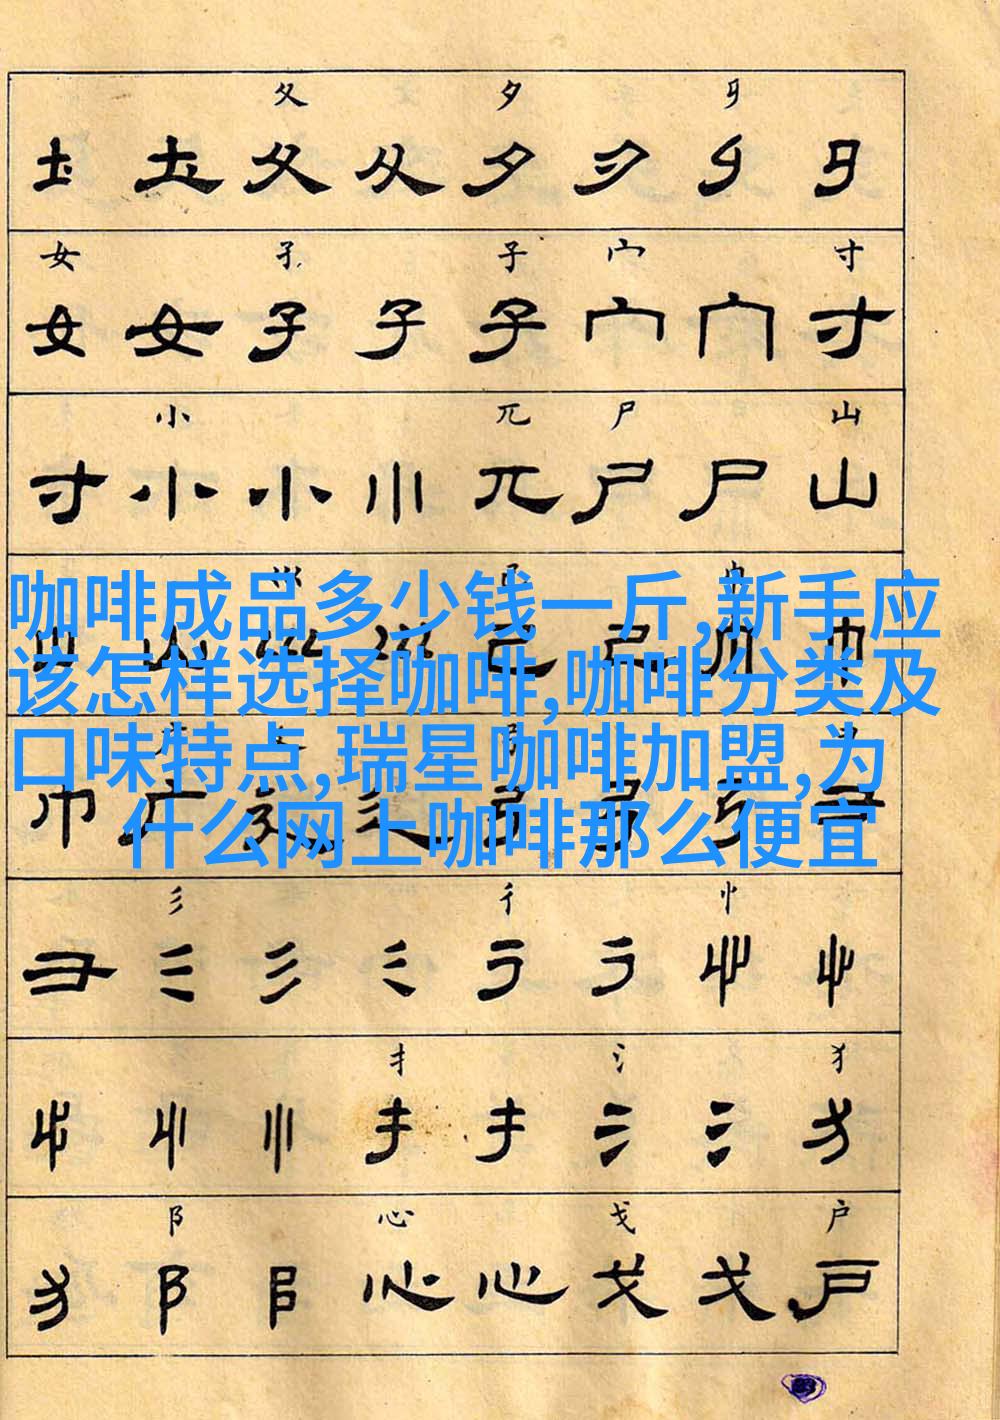 夂 夕
土 土 夂 夂 夕 夕
女 孑 子 宀 寸
女 女 孑 孑 子 宀 宀 寸
小 兀 尸 山
寸 小 小 小 兀 尸 尸 山
咖啡成品多少钱一斤,新手应
该怎样选择咖啡,咖啡分类及
口味特点,瑞星咖啡加盟,为
什么网上咖啡那么便宜
彡 彳 忄
彐 彡 彡 彡 彳 彳 忄 忄
扌 氵 犭
忄 忄 忄 扌 扌 氵 氵 犭
阝 心 戈 户
犭 阝 阝 心 心 戈 戈 户